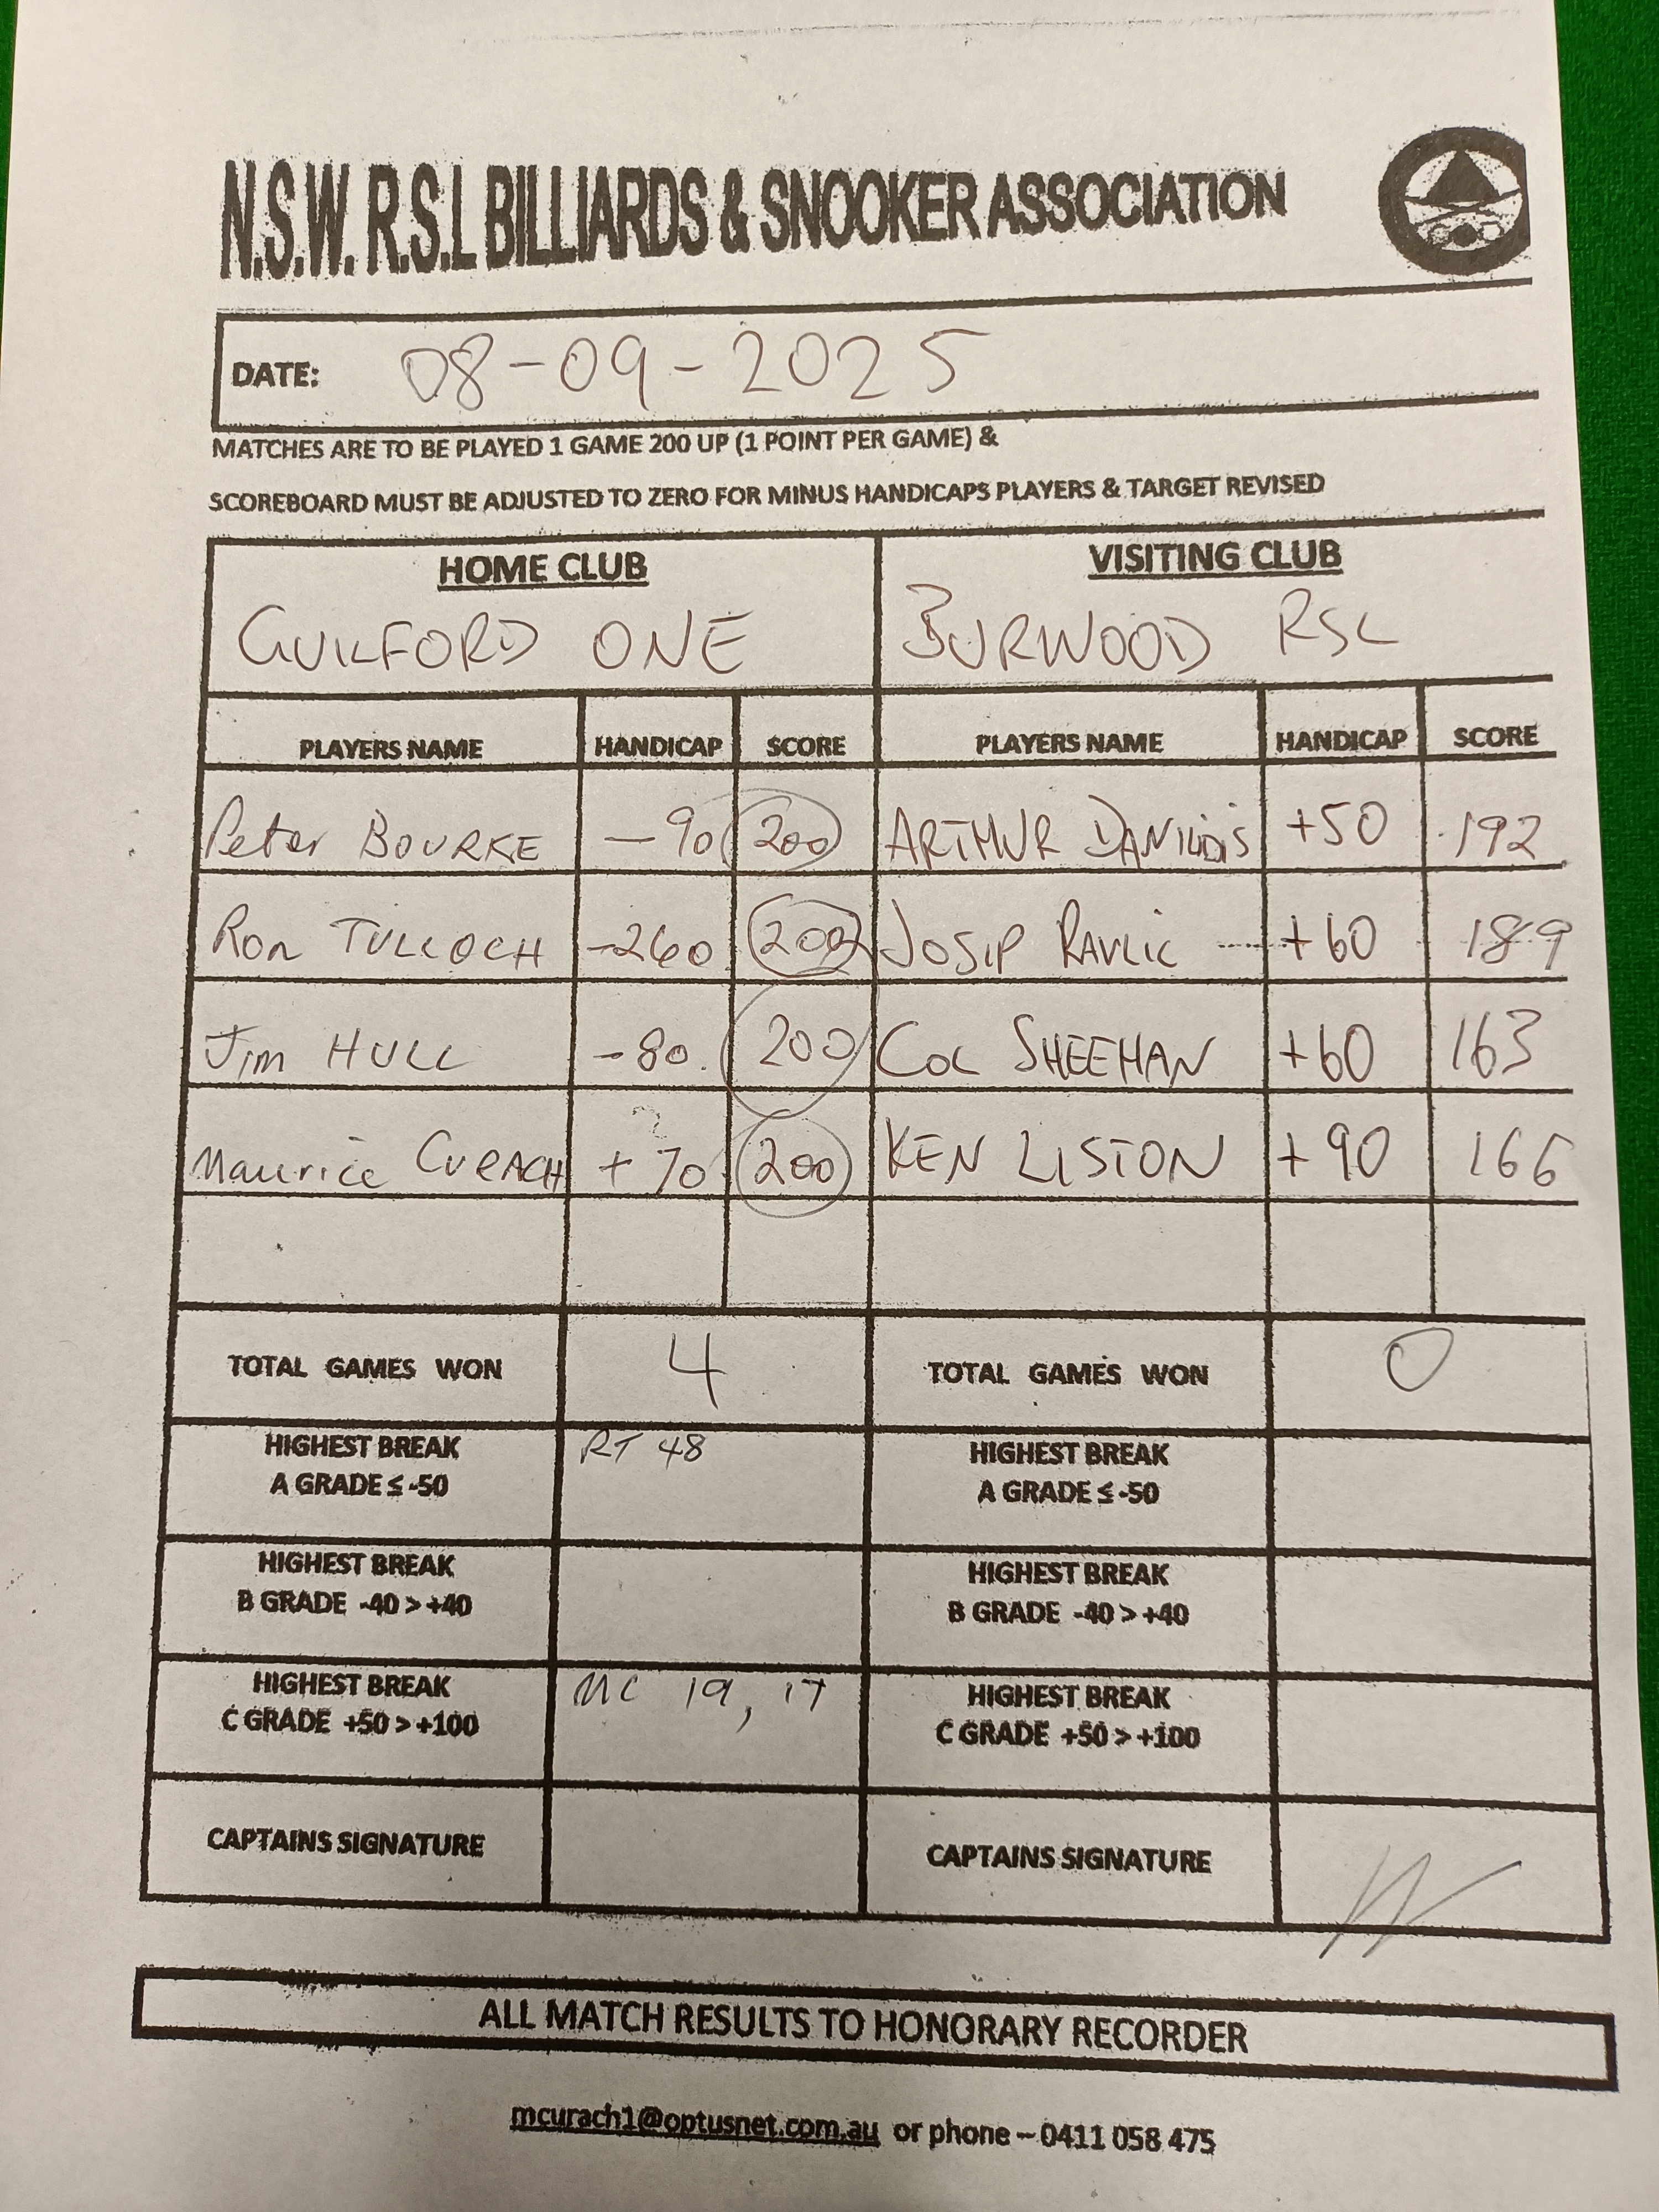 N.S.W. R.S.L BILLIARDS & SNOOKER ASSOCIATION
DATE: 08-09-2025
MATCHES ARE TO BE PLAYED 1 GAME 200 UP (1 POINT PER GAME) &
SCOREBOARD MUST BE ADJUSTED TO ZERO FOR MINUS HANDICAPS PLAYERS & TARGET REVISED
HOME CLUB VISITING CLUB
GUILFORD ONE BURWOOD RSL
PLAYERS NAME HANDICAP SCORE PLAYERS NAME HANDICAP SCORE
Peter BOURKE -90 200 ARTHUR DANILIDIS +50 192
Ron TULLOCH -260 200 JOSIP PAVLIC +60 189
Jim HULL -80 200 COL SHEEHAN +60 163
Maurice CURACH +70 200 KEN LISTON +90 166
TOTAL GAMES WON 4 TOTAL GAMES WON 0
HIGHEST BREAK A GRADE ≤ -50 RT 48 HIGHEST BREAK A GRADE ≤ -50
HIGHEST BREAK B GRADE -40 > +40 HIGHEST BREAK B GRADE -40 > +40
HIGHEST BREAK C GRADE +50 > +100 MC 19, 17 HIGHEST BREAK C GRADE +50 > +100
CAPTAINS SIGNATURE CAPTAINS SIGNATURE
ALL MATCH RESULTS TO HONORARY RECORDER
mcurach1@optusnet.com.au or phone – 0411 058 475